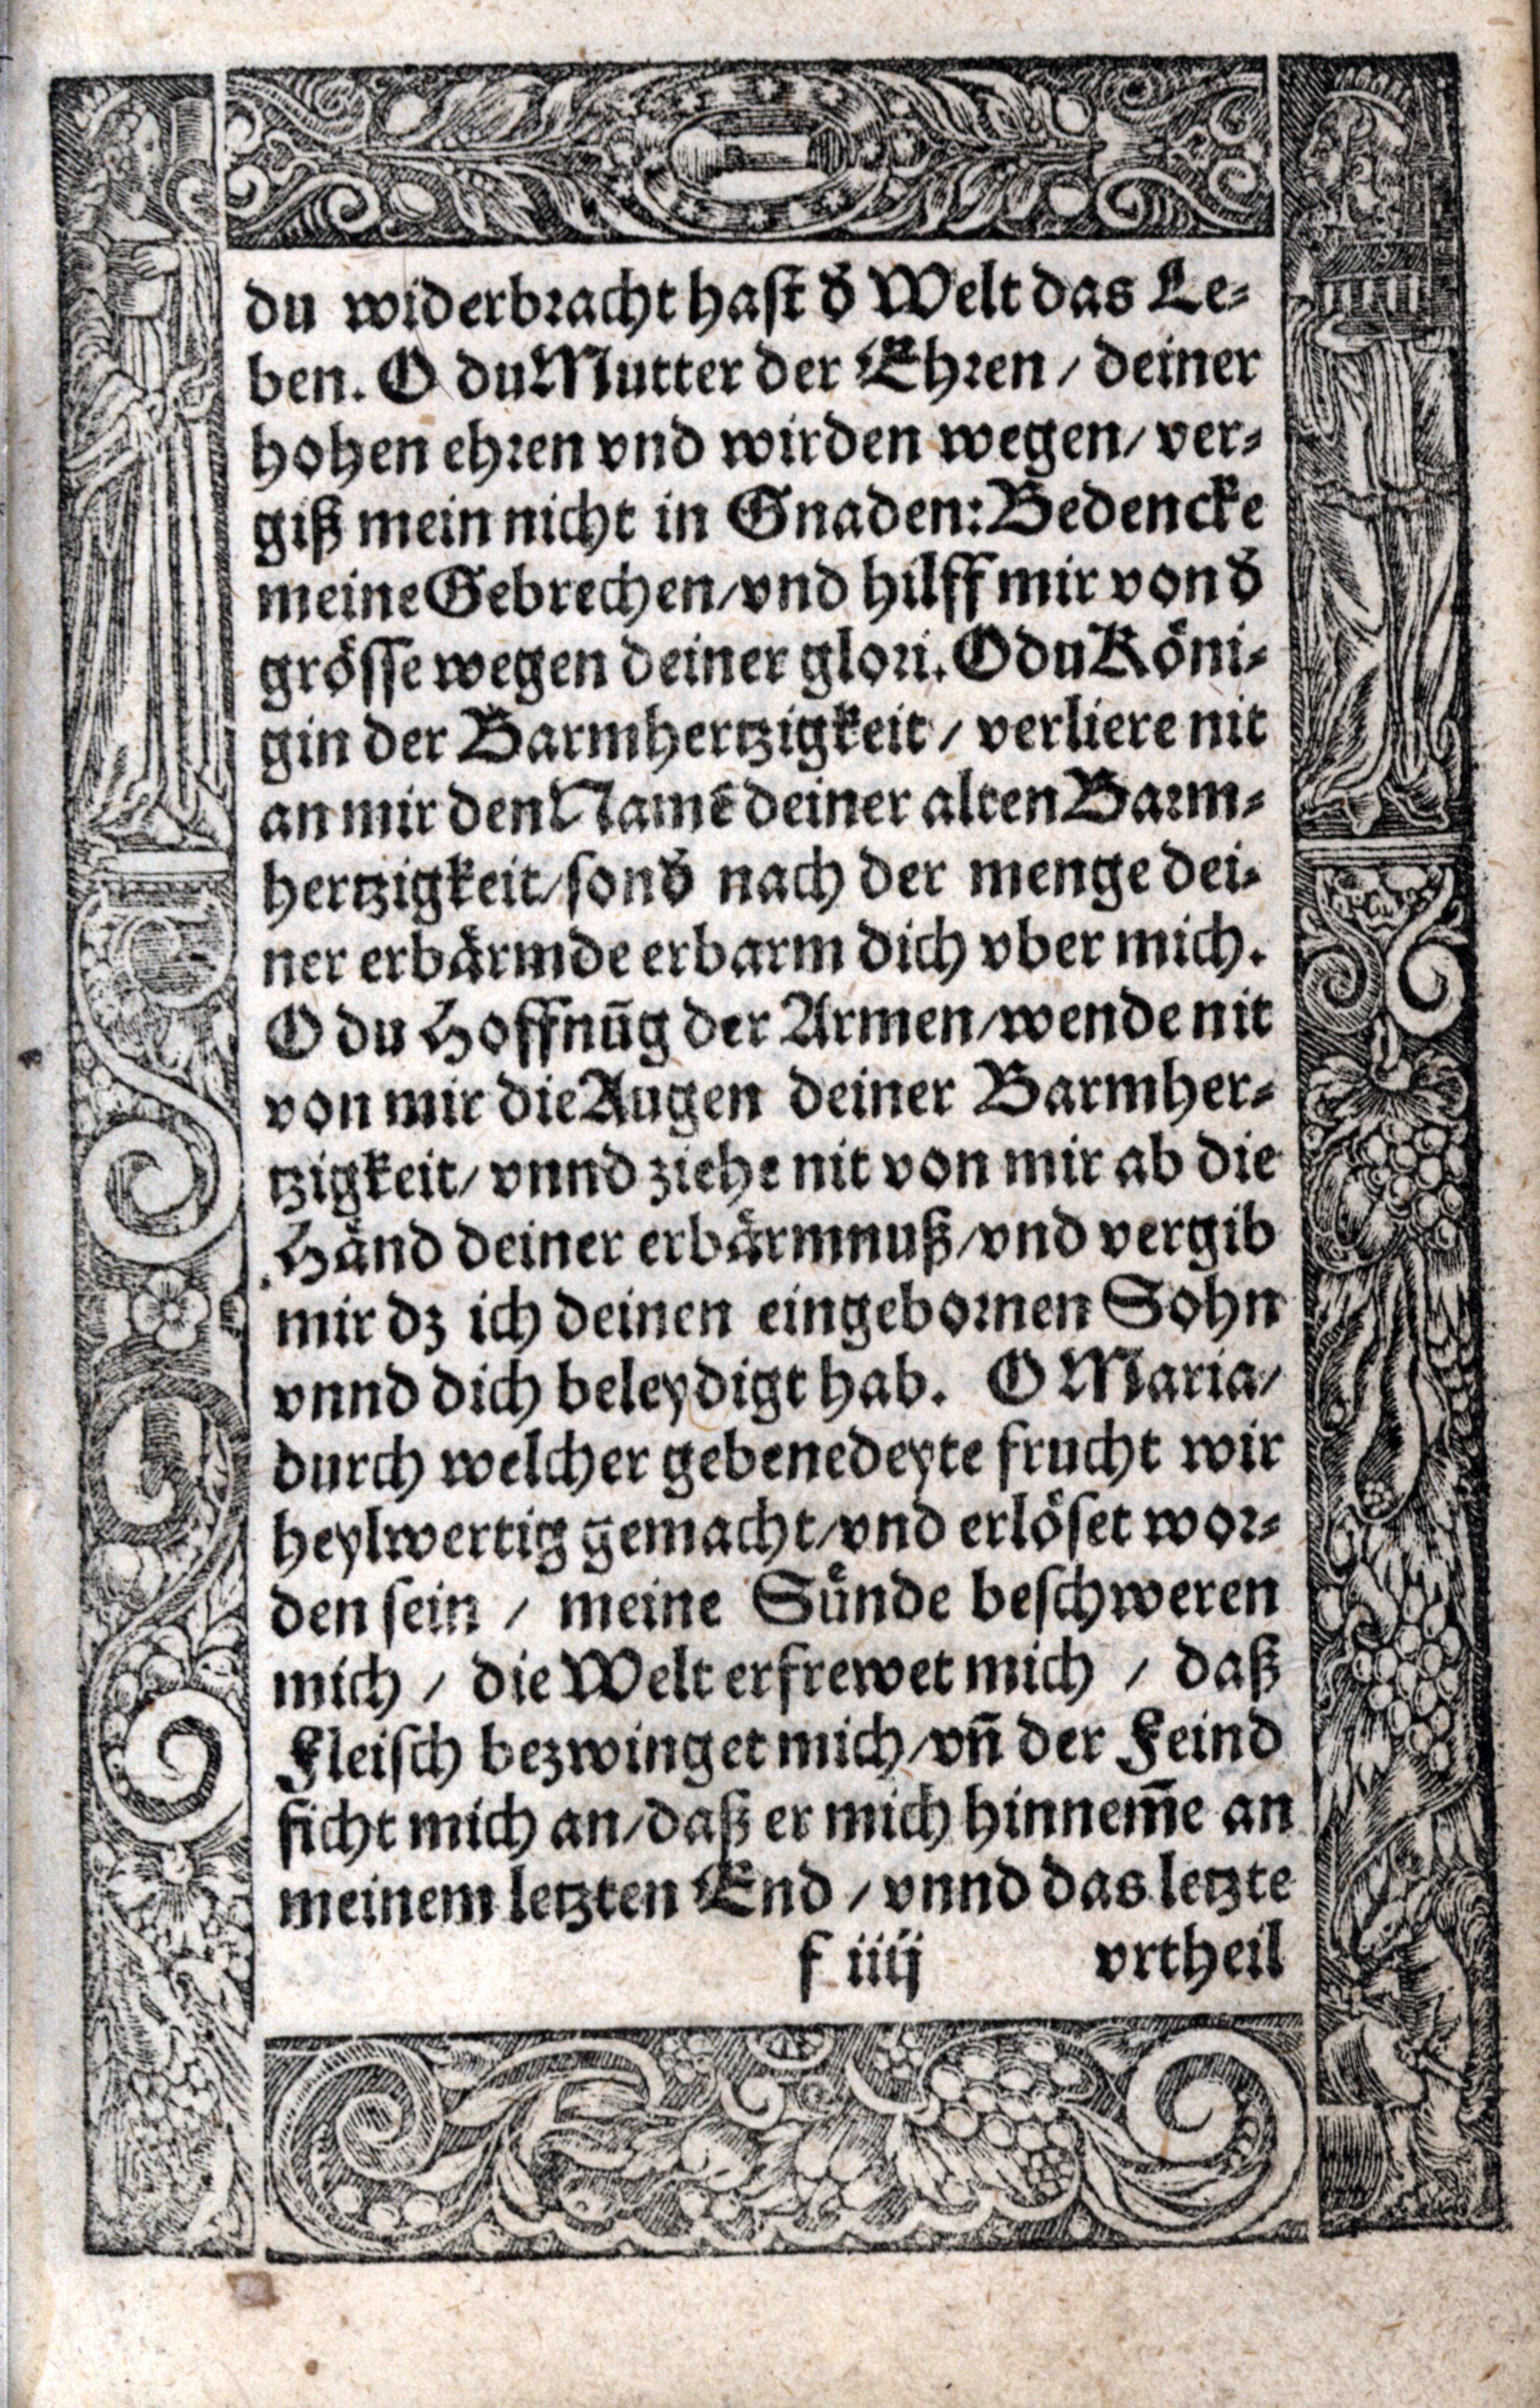 du widerbracht hast ð Welt das Le-
ben. O du Mutter der Ehren / deiner
hohen ehren vnd wirden wegen / ver-
giß mein nicht in Gnaden: Bedencke
meine Gebrechen / vnd hilff mir von ð
grösse wegen deiner glori. O du Köni-
gin der Barmhertzigkeit / verliere nit
an mir den Namē deiner alten Barm-
hertzigkeit / sonð nach der menge dei-
ner erbärmde erbarm dich vber mich.
O du Hoffnūg der Armen / wende nit
von mir die Augen deiner Barmher-
tzigkeit / vnnd ziehe nit von mir ab die
Händ deiner erbärmnuß / vnd vergib
mir dz ich deinen eingebornen Sohn
vnnd dich beleydigt hab. O Maria /
durch welcher gebenedeyte frucht wir
heylwertig gemacht / vnd erlöset wor-
den sein / meine Sünde beschweren
mich / die Welt erfrewet mich / daß
Fleisch bezwinget mich / vn̄ der Feind
ficht mich an / daß er mich hinnem̄e an
meinem letzten End / vnnd das letzte
f iiij vrtheil